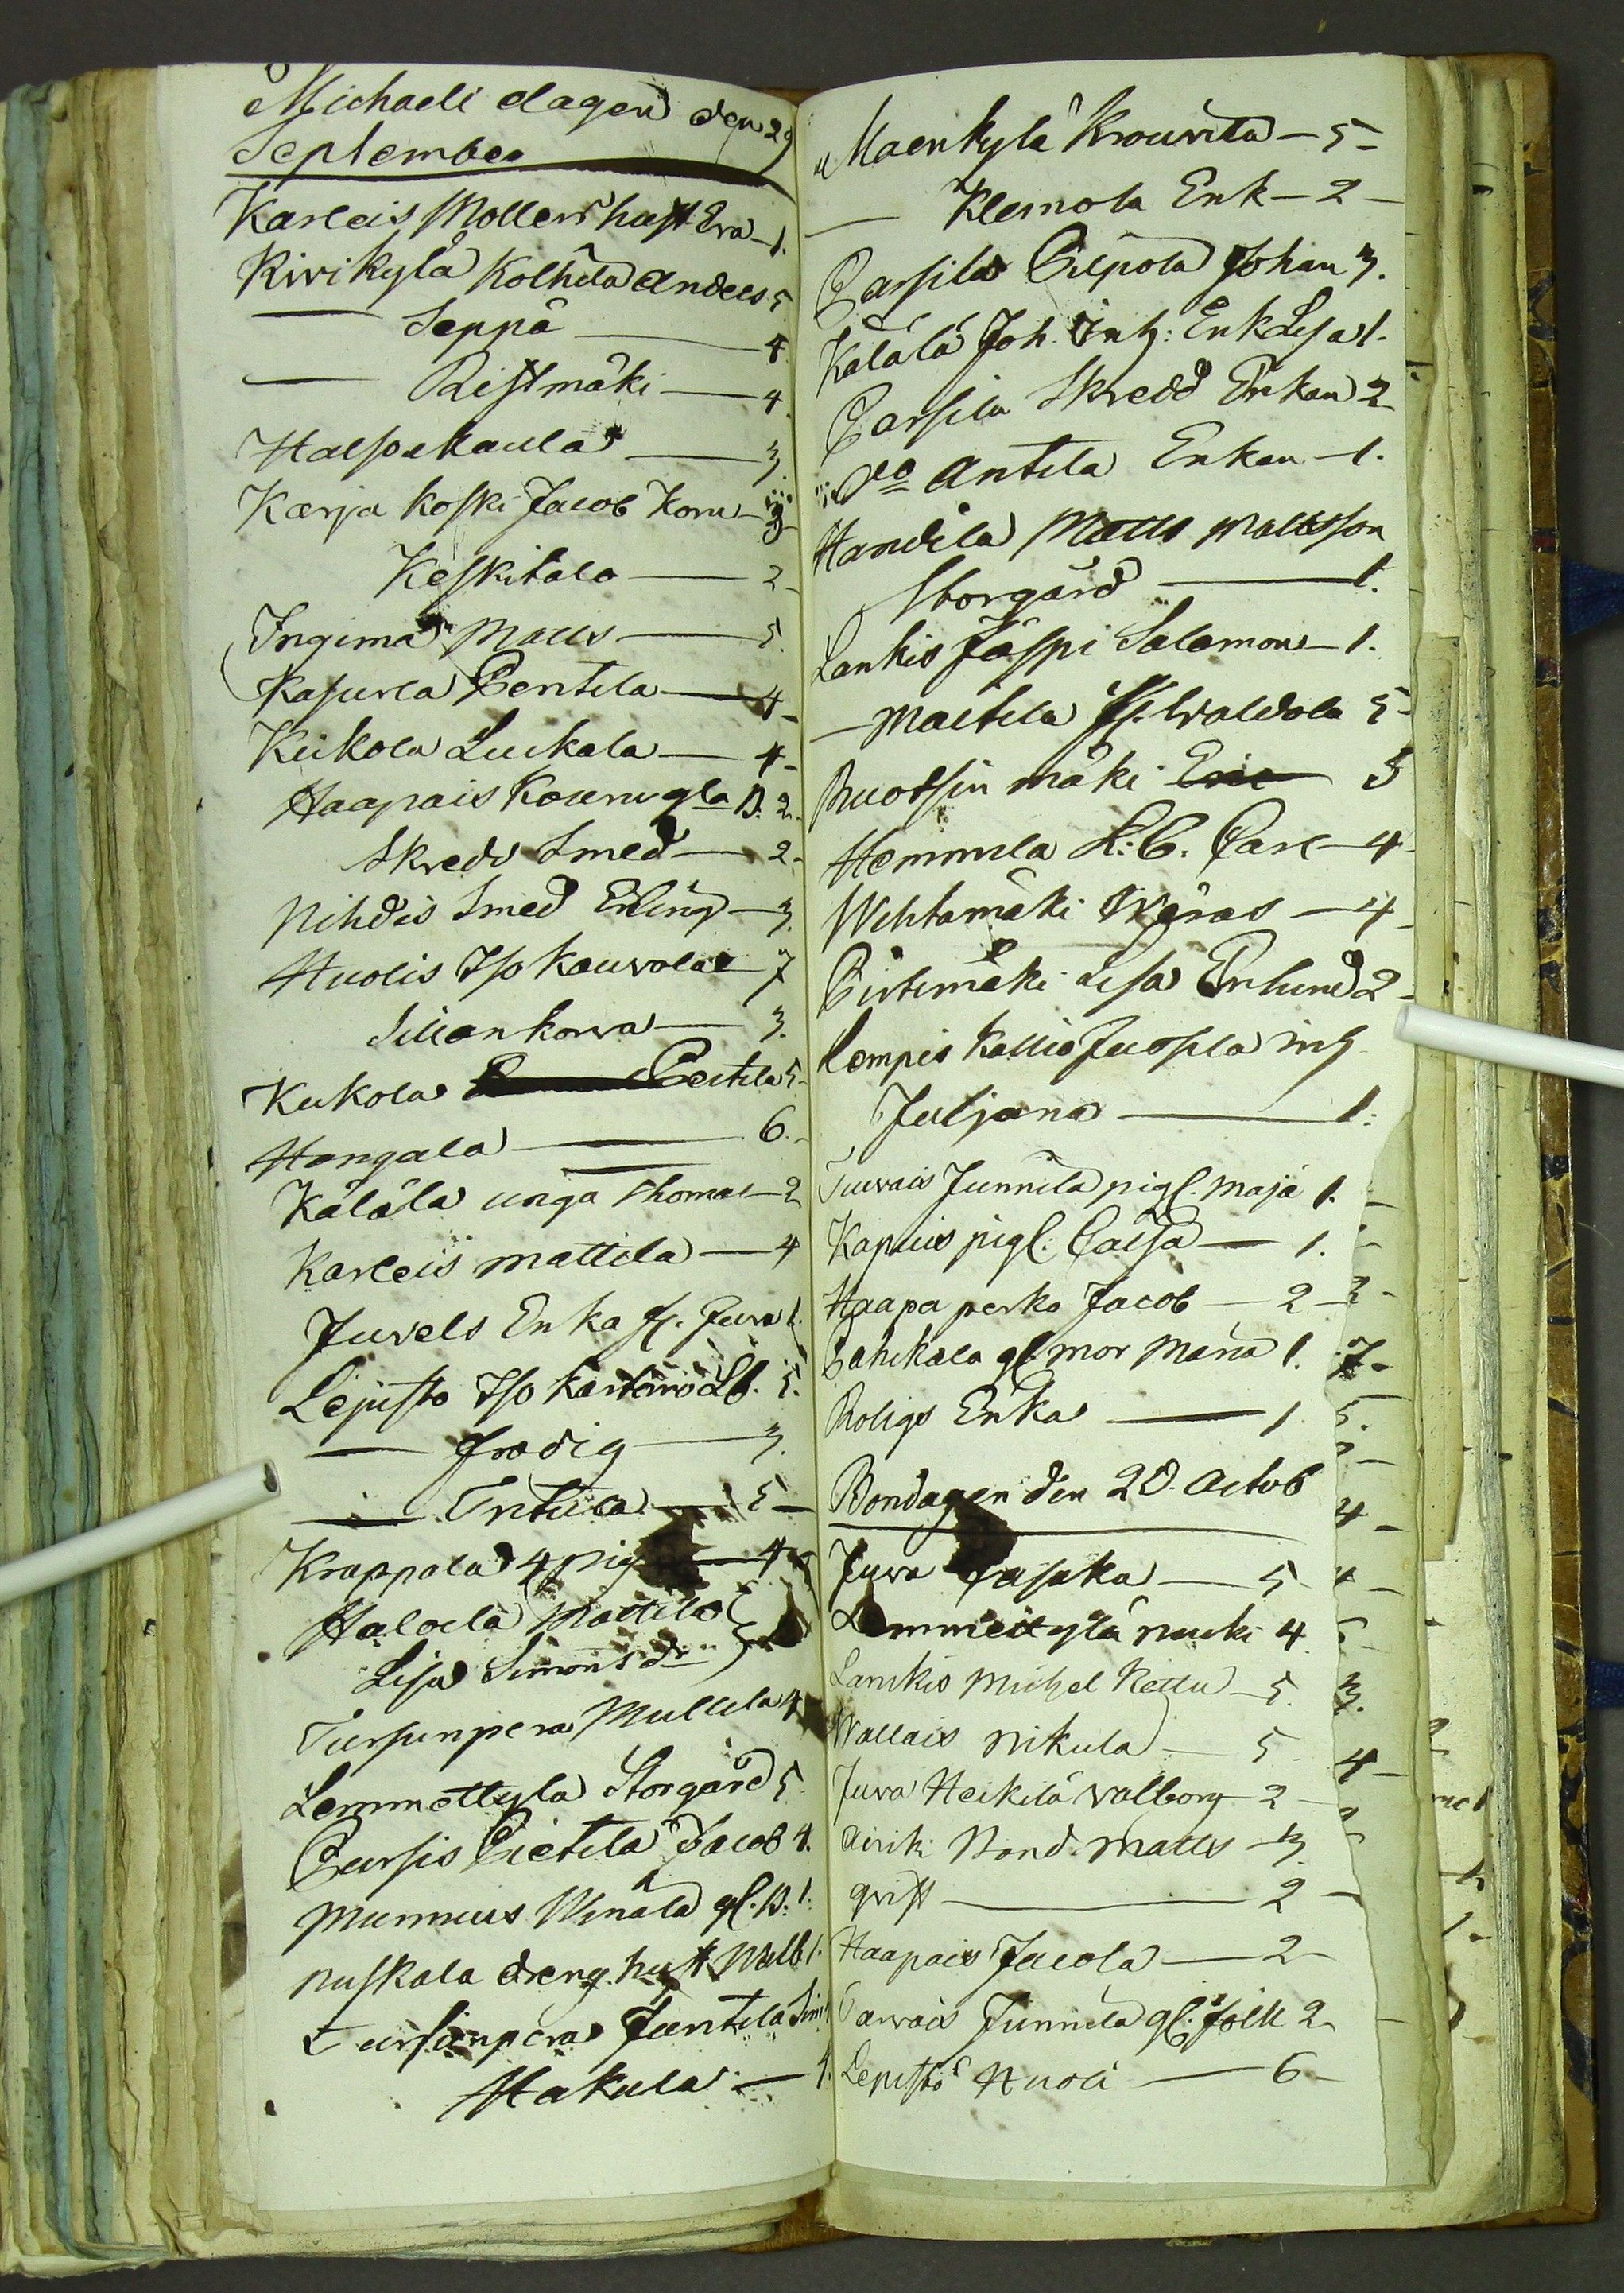 Michaeli dagen den 29
September
Karleis Mollers hust Eva - 1.
Kivikylä Kolhila Anders 5
— Seppä — 4
— Ristmäki — 4.
Halpakaula — 3.
Karja koski Jacob Korn - 3
Keskitalo — 2
Ingima Matts — 5.
Kasurla Pentila — 4
Kukola Luckala — 4
Haapais Kouru gla B. 2.
Skredd Smed — 2
Nihdis Smed Erling - 3.
Huolis Iso Kauvola - 7
Silian korva — 3.
Kukola Pertila 5
Hongala — 6.
Käläla unga Thomas - 2
Karleis Mattila — 4
Juvels Enka f. Juva 1.
Lepisto Iso Kartano LB. 5.
— Frodig — 3.
— Intula — 5 —
Krappala 4 pig — 4
Halola Mattila
Lisa Simonsdr
Tursunpera Mullila 4
Lemmettyla Storgård 5
Pursis Pietila Jacob 4.
Munnus Winala gl. B. 1.
Nuskala dreng hust Walb 1.
Tursunpera Juntila Sim
Hakula — 1.
Maenkylä Krouvila — 5 —
— Klemola Enk — 2 —
Parsila Pilpola Johan 3.
Kälälä Joh. Inh: Enk Lisa 1.
Parsila Skredd Enkan 2
do Antila Enkan — 1.
Handila Matts Mattsson
Storgård — 1.
Lankis Jäspi Salomon — 1.
— Mattila f. Waldola 5 -
Ruotsin mäki Eric 5
Hemmila L: B. Carl — 4
Wihtamäki Weras — 4 -
Pirtimäki Lisa Enlund 2 -
Lempis Kallio Juopila inh
Juljana — 1.
Turvais Junnila pigl. Maja 1.
Kapuis pigl: Caisa — 1.
Haapa perko Jacob — 2 —
Pahikala gl. mor Maria 1.
Roligs Enka — 1
Bondagen den 2d. Octob
Juva Pasaka — 5
Lemmettylä nuski 4
Lankis Michel Kettu — 5.
Wallais Nikula — 5
Juva Heikilä Walborg 2 —
Airiki Nond. Matts — 3.
qvist — 2 —
Haapais Jacola — 2 —
Tarvais Junnila gl. folk 2
Lepistö Huoli — 6 —
2 -
7 -
5.
4 —
4 —
3.
4 —